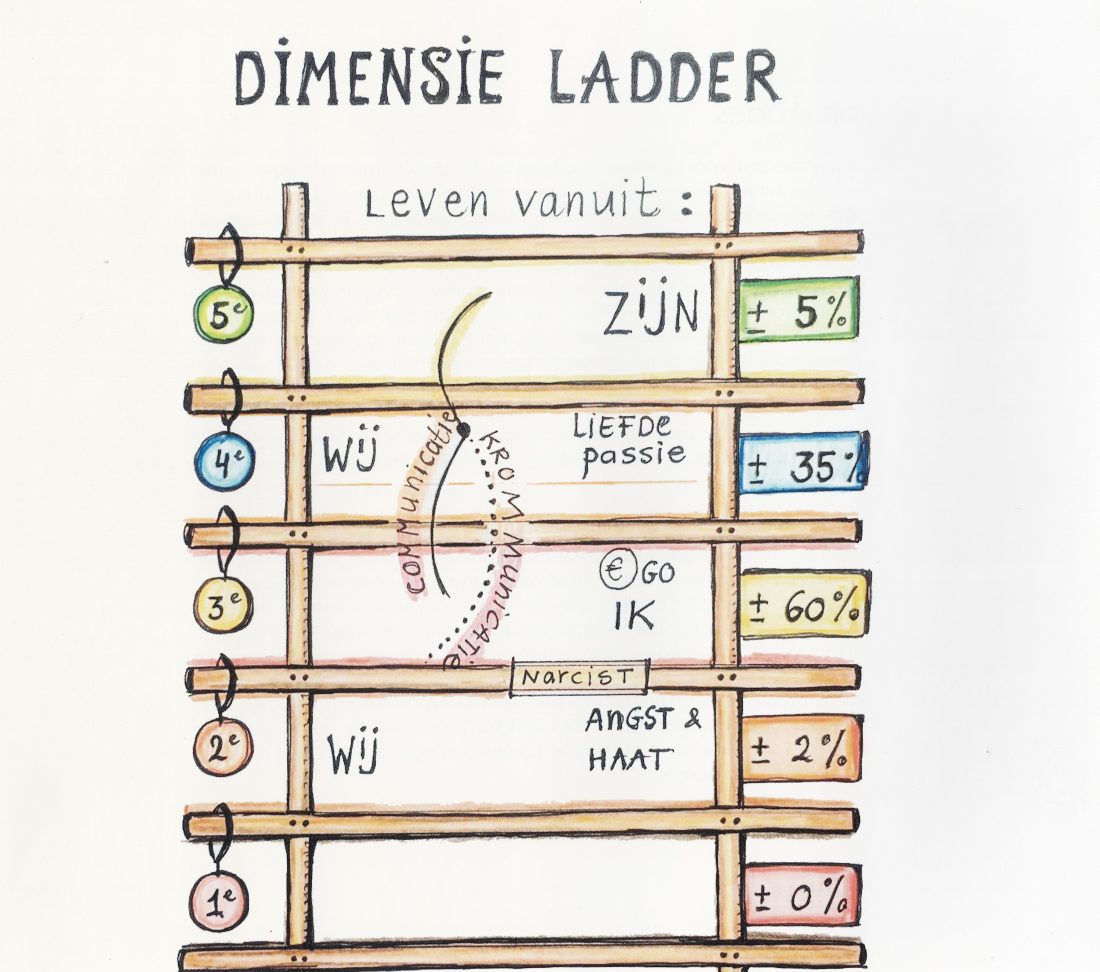 DIMENSIE LADDER
Leven vanuit :
5e
ZIJN
± 5%
4e
WIJ
communicatie
KROMMUNICATIE
LIEFDE
passie
± 35%
3e
€GO
IK
± 60%
NARCIST
2e
WIJ
ANGST &
HAAT
± 2%
1e
± 0%